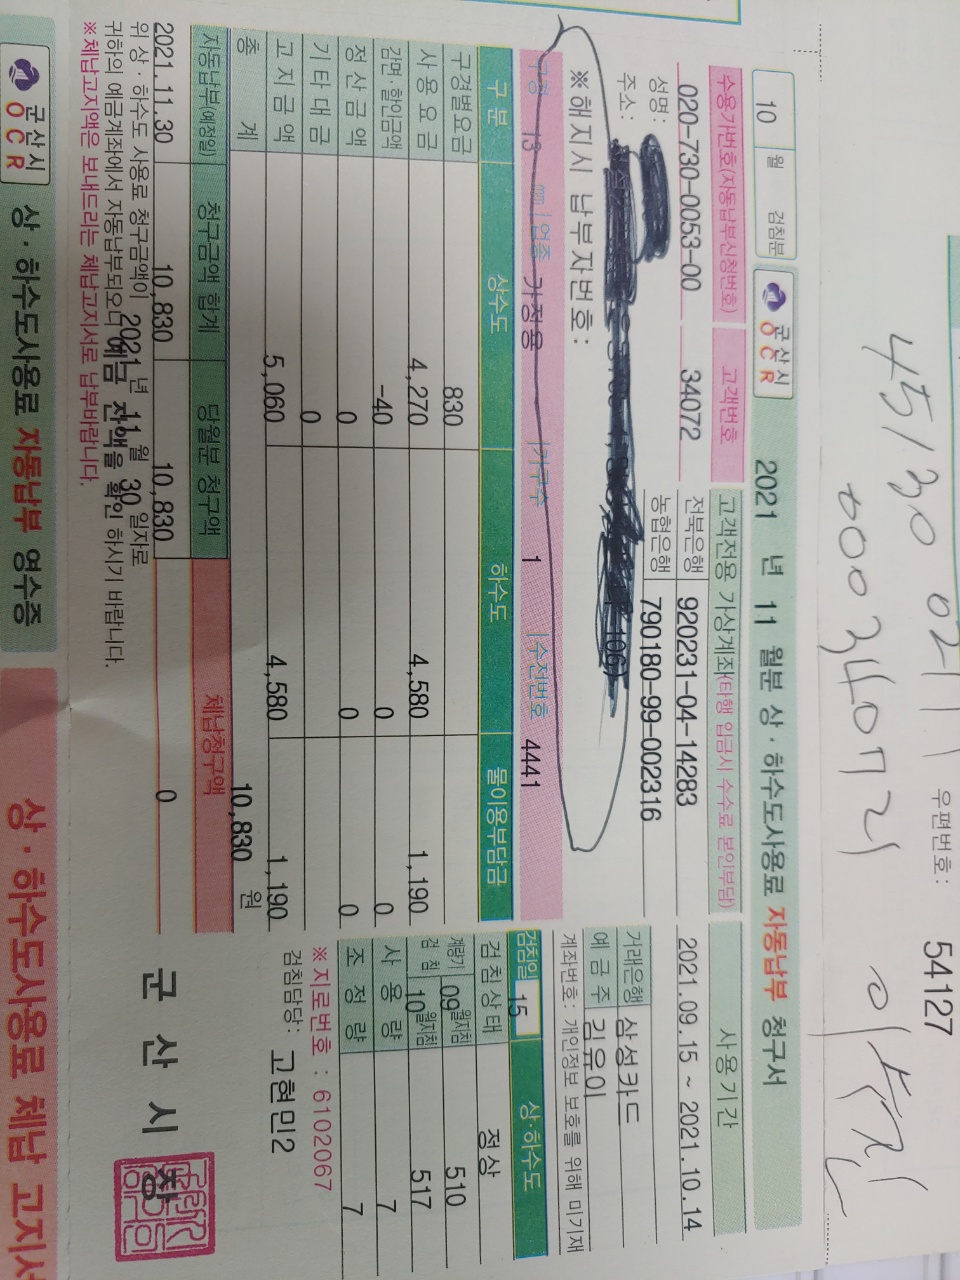 우편번호: 54127
45130 021
00034072
10 월 검침분
군산시
OCR
2021 년 11 월분 상·하수도사용료 자동납부 청구서
수용가번호(자동납부신청번호) 고객번호
020-730-0053-00 34072
고객전용 가상계좌(타행 입금시 수수료 본인부담)
전북은행 920231-04-14283
농협은행 790180-99-002316
사용기간
2021.09.15 ~ 2021.10.14
성명:
주소:
106)
거래은행 삼성카드
예금주 김유이
계좌번호: 개인정보 보호를 위해 미기재
※해지시 납부자번호:
구경 13 mm 업종 가정용 가구수 1 수전번호 4441
구분 상수도 하수도 물이용부담금
구경별요금 830
사용요금 4,270 4,580 1,190
감면·할인금액 -40 0 0
정산금액 0 0 0
기타대금 0
고지금액 5,060 4,580 1,190
총계 10,830 원
검침일 15 상·하수도
검침상태 정상
계량기검침 09월지침 510
10월지침 517
사용량 7
조정량 7
자동납부(예정일) 청구금액 합계 당월분 청구액 체납청구액
2021.11.30 10,830 10,830 0
※지로번호 : 6102067
검침담당: 고현민2
위 상·하수도 사용료 청구금액이 2021 년 11 월 30 일자로
귀하의 예금계좌에서 자동납부되오니 예금 잔액을 확인 하시기 바랍니다.
※체납고지액은 보내드리는 체납고지서로 납부바랍니다.
군산시장
군산시
OCR
상·하수도사용료 자동납부 영수증
상·하수도사용료 체납 고지서